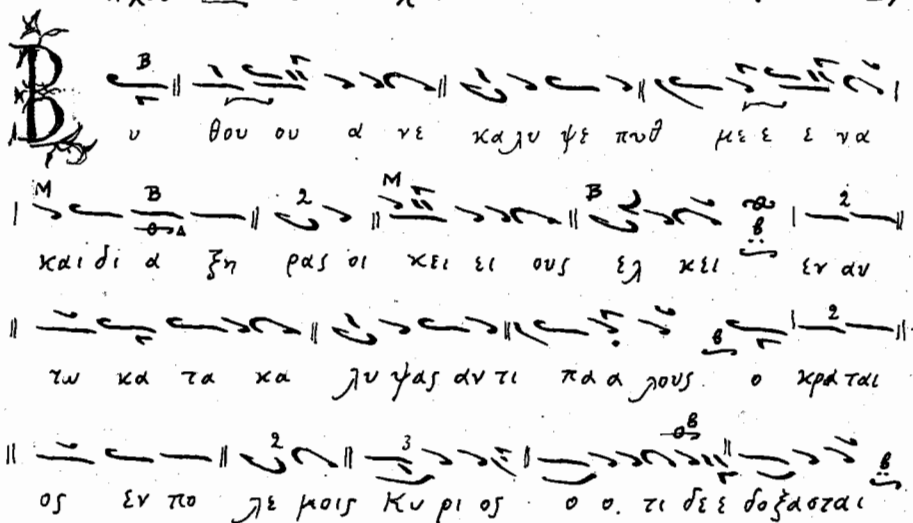 Βυ θου ου α νε κα λυ ψε πυθ με ε ε να
και δι α ξη ρας οι κει ει ους ελ κει εν αυ
τω κα τα κα λυ ψας αν τι πα α λους ο κραται
ος εν πο λε μοις Κυ ρι ος ο ο. τι δε ε δοξασται